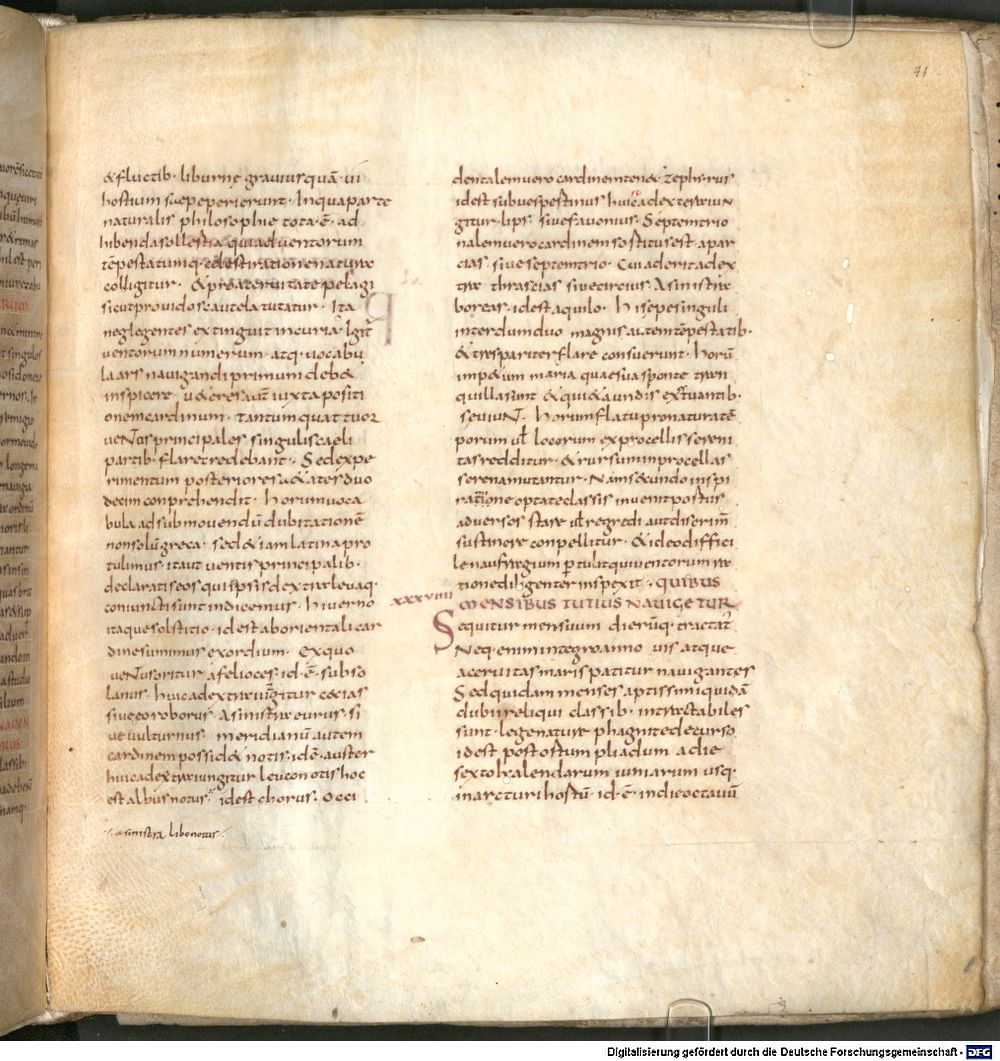 41
& fluctib· liburnę gravius quā· ui
hostium suepeperierunt· Inqua parte
naturalis philosophie tota· ē· ad
hibenda sollestia quia duentorum
tēpestatumq· celesti ratione naturae
colligitur· & pro acervitate pelagi
sicut providos cautela tutatur· Ita
neglegentes extinguit incuria· Igit̄
uentorum numerum· atq· uocabu
la ars navigandi primum deb&
inspicere· u&eres aut̄ iuxta positi
onem cardinum· tantum quattuor
ueNtos principales singulis caeli
partib· flare credebant· Sed expe
rimentum posterioris a&atis duo
decim conprehendit· horum uoca
bula ad submovendū dubitationē
non solū greca· sed &iam latina pro
tulimus· ita ut ventis principalib·
declaratis eos qui ipsis dextra levaq·
coniuncti sunt indicemus· hiverno
itaque solstitio· id est ab orientali car
dine sumimus exordium· Ex quo
ueNtus oritur afelioces· id· ē· subso
lanus· huic a dextra iungitur cecias
sive eoroborus· Asinistra eurus· si
ve vulturnus· meridianū autem
cardinem possid& notis· idē· auster
huic a dextra iungitur leuconotis hoc
est albus notus· id est chorus· occi
asinistra libonotus·
dentalem vero cardinem ten& zephirus
id est subvespertinus huic a dextra iuN
gitur· lips· sive favonius· Septemtrio
nalem vero cardinem sostitus est apar
cias· sive septemtrio· Cui aderit a dex
tra thrascias sive circius· Asinistra
boreas· id est aquilo· hi sepe singuli
interdum duo magnis autem tēpestatib·
& tres pariter flare consuerunt· horū
imp&um maria quae sua sponte tran
quilla sunt & qui&a undis extuantib·
seviuNt· horum flatu pro naturatē
porum ul locorum ex procellis sereni
tas redditur· & rursum in procellas
serena mutantur· Nam secundo inspi
ratione optate classis invenit postus
adversos stare ul regredi aut diserim̄
sustinere conpellitur· & ideo diffici
le naufragium ptulat qui uentorum ra
tione diligenter inspexit· QUIBUS
xxxviiii MENSIBUS TUTIUS NAVIGETUR
Sequitur mensium dierūq· tractat̄
Neq· enim integro anno vis atque
acervitas maris patitur navigantes
Sed quidam menses aptissimi quidā
dubii reliqui classib· intractabiles
sunt· lege nature phagnite decurso
id est post ostum pliadum a die
sexto kalendarum iuniarum usq·
in arcturi hostū· id· ē· in die octavū